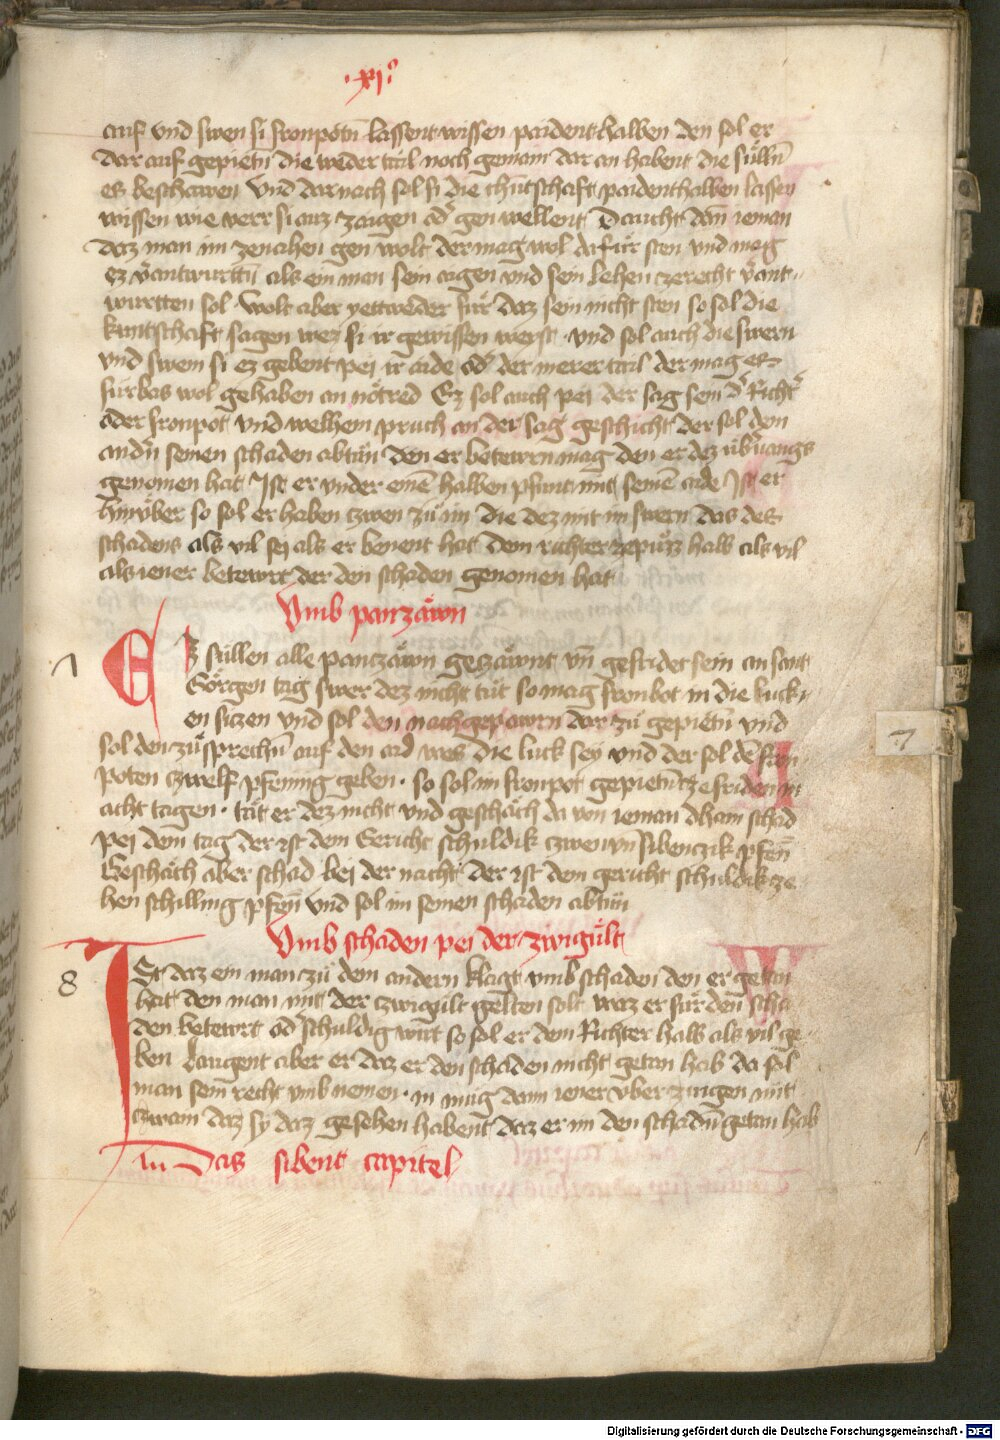 ·xj·º
auf vnd swen si fronpotn̄ lassent wissen paident halben den sol er
dar auf gepietn̄ die weder tail noch gemain dar an habent die sülln̄
es beschawen Vnd dar nach sol si die chuntschaft paidenthalben lassen
wissen wie verr si auz zaigen od' gen wellent Daucht dan̄ ieman
daz man im ze nahen gen wolt der mag wol dafür sten vnd mag
ez v̓antwurttn̄ als ein man sein aigen vnd sein lehen ze recht v̓ant
wurtten sol · wolt aber yettweder für daz sein nicht sten so sol die
kuntschaft sagen wez si ir gewissen weist · vnd sol auch die swern
vnd swem si ez gebent pei ir aide od' der merer tail der mag es
fürbas wol gehaben an nötred Ez sol auch pei der sag sein d' Richt'
oder fronpot vnd welhem pruch an der sag geschicht der sol dem
andn̄ seinen schaden abtün den er betewrn mag den er dez übv̓angs
genomen hat Ist er vnder einē halben pfunt mit seinē aide Ist er
hinüber so sol er haben zwen zü im die dez mit im swern das des
schadens als vil sei als er benent hat dem richter ze püzz halb als vil
als iener betewrt der den schaden genomen hat
Vmb panzäwn
7 Ez süllen alle pantzäwn gezäwnt vn̄ gefridet sein an sant
Görgen tag swer dez nicht tüt so mag fronbot in die luck
en sitzen vnd sol den nachgepawrn dar zü gepietn̄ vnd
sol den zü sprechn̄ auf den aid wes die luck sey vnd der sol dē fron
poten zwelf pfening geben · so sol im fronpot gepietn̄ tze friden in
acht tagen · tüt er dez nicht vnd geschäch da von ieman dham schad
pei dem tag der ist dem Gericht schuldik zwen vn̄ sibenczik pfen̄
Geschäch aber schad bei der nacht der ist dem gericht schuldik ze
hen schilling pfen̄ vnd sol im seinen schaden abtün
Vmb schaden pei der zwigült
8 Ist daz ein man zü dem andern klagt vmb schaden den er getan
hat den man mit der zwigült gelten solt waz er für den scha
den betewrt od' schuldig wirt so sol er dem Richter halb als vil ge
ben Laugent aber er daz er den schaden nicht getan hab da sol
man sein recht vmb nemen · in müg dann iener vber zeugen mit
zwain daz sy daz gesehen habent daz er im den schadn̄ getan hab
Das sibent capitel
7